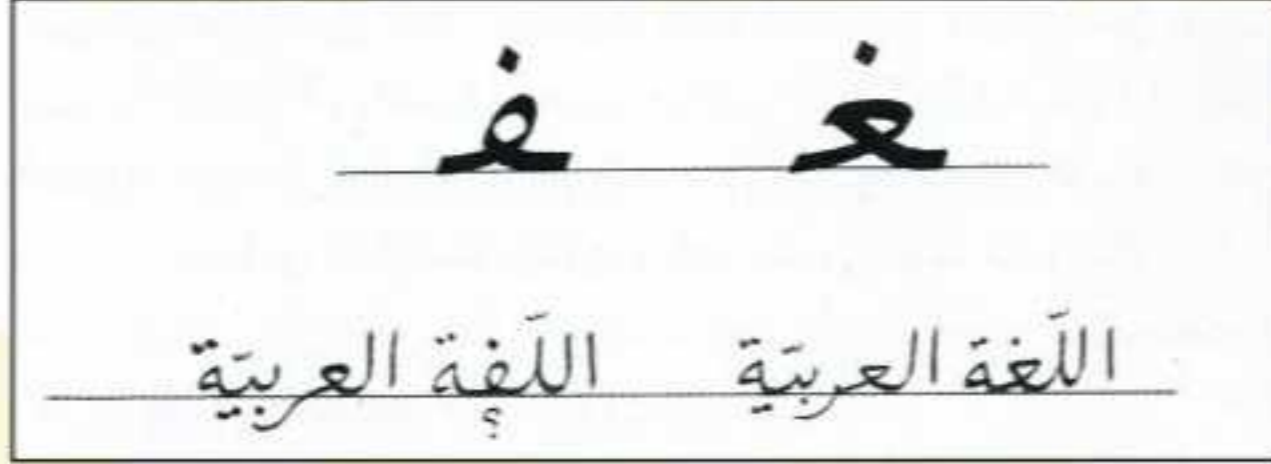 ـغـ ـفـ
اللّغة العربيّة اللّفة العربيّة
؟